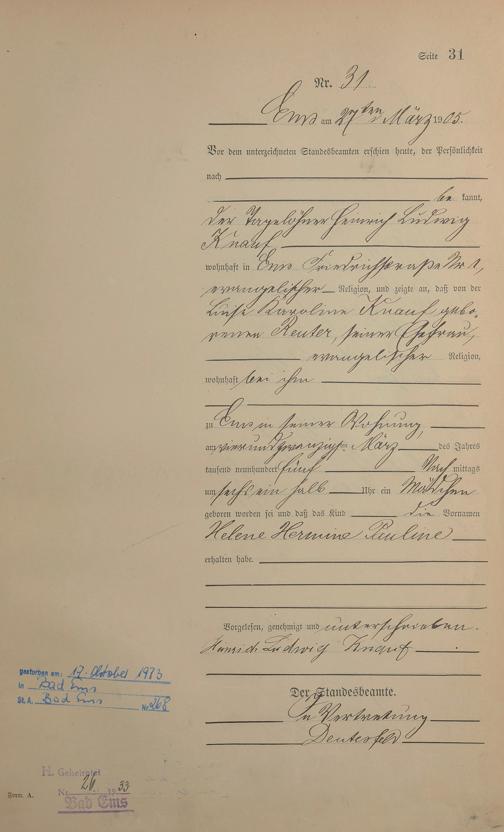 Seite 31
Nr. 31
Ems am 27ten März 1905.
Vor dem unterzeichneten Standesbeamten erschien heute, der Persönlichkeit
nach
be kannt,
der Tagelöhner Heinrich Ludwig
Knauf
wohnhaft in Ems Friedrichstraße Nr 1,
evangelischer Religion, und zeigte an, daß von der
Luise Karoline Knauf gebo-
renen Reuter, seiner Ehefrau,
evangelischer Religion,
wohnhaft bei ihm
zu Ems in seiner Wohnung,
am vierundzwanzigsten März des Jahres
tausend neunhundert fünf Nach mittags
um sechs ein halb Uhr ein Mädchen
geboren worden sei und daß das Kind die Vornamen
Helene Hermine Pauline
erhalten habe.
Vorgelesen, genehmigt und unterschrieben.
Heinrich Ludwig Knauf
Der Standesbeamte.
In Vertretung
gestorben am: 17. Oktober 1973
in Bad Ems
St. A. Bad Ems Nr. 268
H. Geheiratet
Nr. 26 1933
Bad Ems
Form. A.